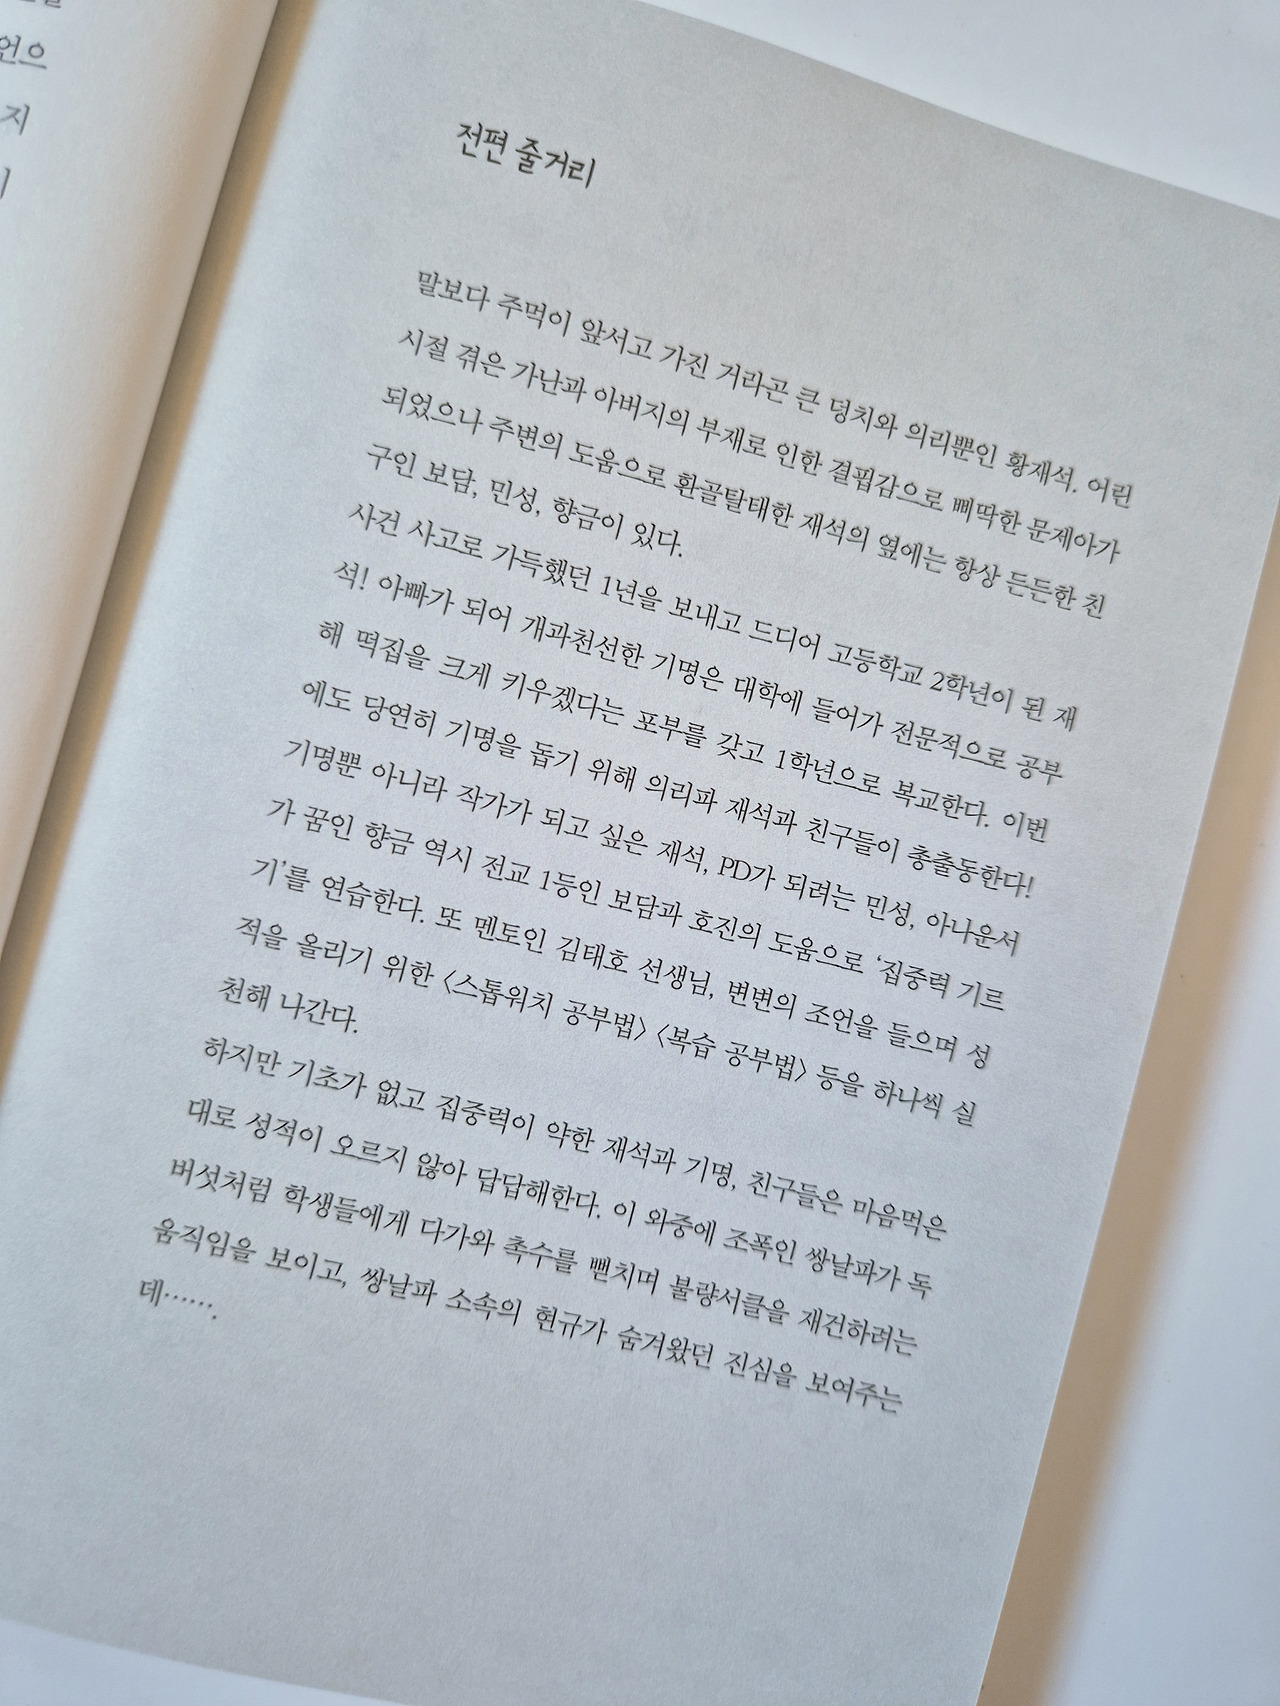 언으
지
전편 줄거리
말보다 주먹이 앞서고 가진 거라곤 큰 덩치와 의리뿐인 황재석. 어린
시절 겪은 가난과 아버지의 부재로 인한 결핍감으로 삐딱한 문제아가
되었으나 주변의 도움으로 환골탈태한 재석의 옆에는 항상 든든한 친
구인 보담, 민성, 향금이 있다.
사건 사고로 가득했던 1년을 보내고 드디어 고등학교 2학년이 된 재
석! 아빠가 되어 개과천선한 기명은 대학에 들어가 전문적으로 공부
해 떡집을 크게 키우겠다는 포부를 갖고 1학년으로 복교한다. 이번
에도 당연히 기명을 돕기 위해 의리파 재석과 친구들이 총출동한다!
기명뿐 아니라 작가가 되고 싶은 재석, PD가 되려는 민성, 아나운서
가 꿈인 향금 역시 전교 1등인 보담과 호진의 도움으로 ‘집중력 기르
기’를 연습한다. 또 멘토인 김태호 선생님, 변변의 조언을 들으며 성
적을 올리기 위한 〈스톱워치 공부법〉 〈복습 공부법〉 등을 하나씩 실
천해 나간다.
하지만 기초가 없고 집중력이 약한 재석과 기명, 친구들은 마음먹은
대로 성적이 오르지 않아 답답해한다. 이 와중에 조폭인 쌍날파가 독
버섯처럼 학생들에게 다가와 촉수를 뻗치며 불량서클을 재건하려는
움직임을 보이고, 쌍날파 소속의 현규가 숨겨왔던 진심을 보여주는
데…….